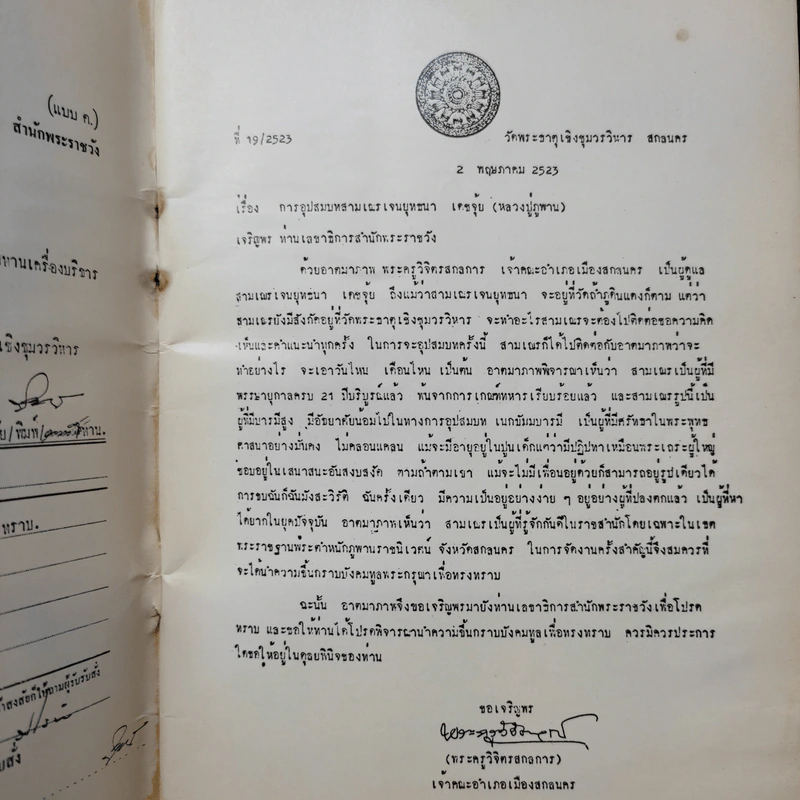 (แบบ ค.)
สำนักพระราชวัง
ทานเครื่องบริขาร
เชิงชุมวรวิหาร
/พิมพ์/
ท่าน.
ทราบ.
ที่ 19/2523
วัดพระธาตุเชิงชุมวรวิหาร สกลนคร
2 พฤษภาคม 2523
เรื่อง การอุปสมบทสามเณรเจนยุทธนา เดชจุ้ย (หลวงปู่ภูพาน)
เจริญพร ท่านเลขาธิการสำนักพระราชวัง
ด้วยอาตมาภาพ พระครูวิจิตรสกลการ เจ้าคณะอำเภอเมืองสกลนคร เป็นผู้ดูแล
สามเณรเจนยุทธนา เดชจุ้ย ถึงแม้ว่าสามเณรเจนยุทธนา จะอยู่ที่วัดถ้ำภูดินแดงก็ตาม แต่ว่า
สามเณรยังมีสังกัดอยู่ที่วัดพระธาตุเชิงชุมวรวิหาร จะทำอะไรสามเณรจะต้องไปติดต่อขอความคิด
เห็นและคำแนะนำทุกครั้ง ในการจะอุปสมบทครั้งนี้ สามเณรก็ได้ไปติดต่อกับอาตมาภาพว่าจะ
ทำอย่างไร จะเอาวันไหน เดือนไหน เป็นต้น อาตมาภาพพิจารณาเห็นว่า สามเณรเป็นผู้ที่มี
พรรษายุกาลครบ 21 ปีบริบูรณ์แล้ว พ้นจากการเกณฑ์ทหารเรียบร้อยแล้ว และสามเณรรูปนี้เป็น
ผู้ที่มีบารมีสูง มีอัชยาศัยน้อมไปในทางการอุปสมบท เนกขัมมบารมี เป็นผู้ที่มีศรัทธาในพระพุทธ
ศาสนาอย่างมั่นคง ไม่คลอนแคลน แม้จะมีอายุอยู่ในปูนเด็กแต่ว่ามีปฏิปทาเหมือนพระเถระผู้ใหญ่
ชอบอยู่ในเสนาสนะอันสงบสงัด ตามถ้ำตามเขา แม้จะไม่มีเพื่อนอยู่ด้วยก็สามารถอยู่รูปเดียวได้
การขบฉันก็ฉันมังสะวิรัติ ฉันครั้งเดียว มีความเป็นอยู่อย่างง่าย ๆ อยู่อย่างผู้ที่ปลงตกแล้ว เป็นผู้ที่หา
ได้ยากในยุคปัจจุบัน อาตมาภาพเห็นว่า สามเณรเป็นผู้ที่รู้จักกันดีในราชสำนักโดยเฉพาะในเขต
พระราชฐานพระตำหนักภูพานราชนิเวศน์ จังหวัดสกลนคร ในการจัดงานครั้งสำคัญนี้จึงสมควรที่
จะได้นำความขึ้นกราบบังคมทูลพระกรุณาเพื่อทรงทราบ
ฉะนั้น อาตมาภาพจึงขอเจริญพรมายังท่านเลขาธิการสำนักพระราชวังเพื่อโปรด
ทราบ และขอให้ท่านได้โปรดพิจารณานำความขึ้นกราบบังคมทูลเพื่อทรงทราบ ควรมิควรประการ
ใดขอให้อยู่ในดุลยพินิจของท่าน
ขอเจริญพร
(พระครูวิจิตรสกลการ)
เจ้าคณะอำเภอเมืองสกลนคร